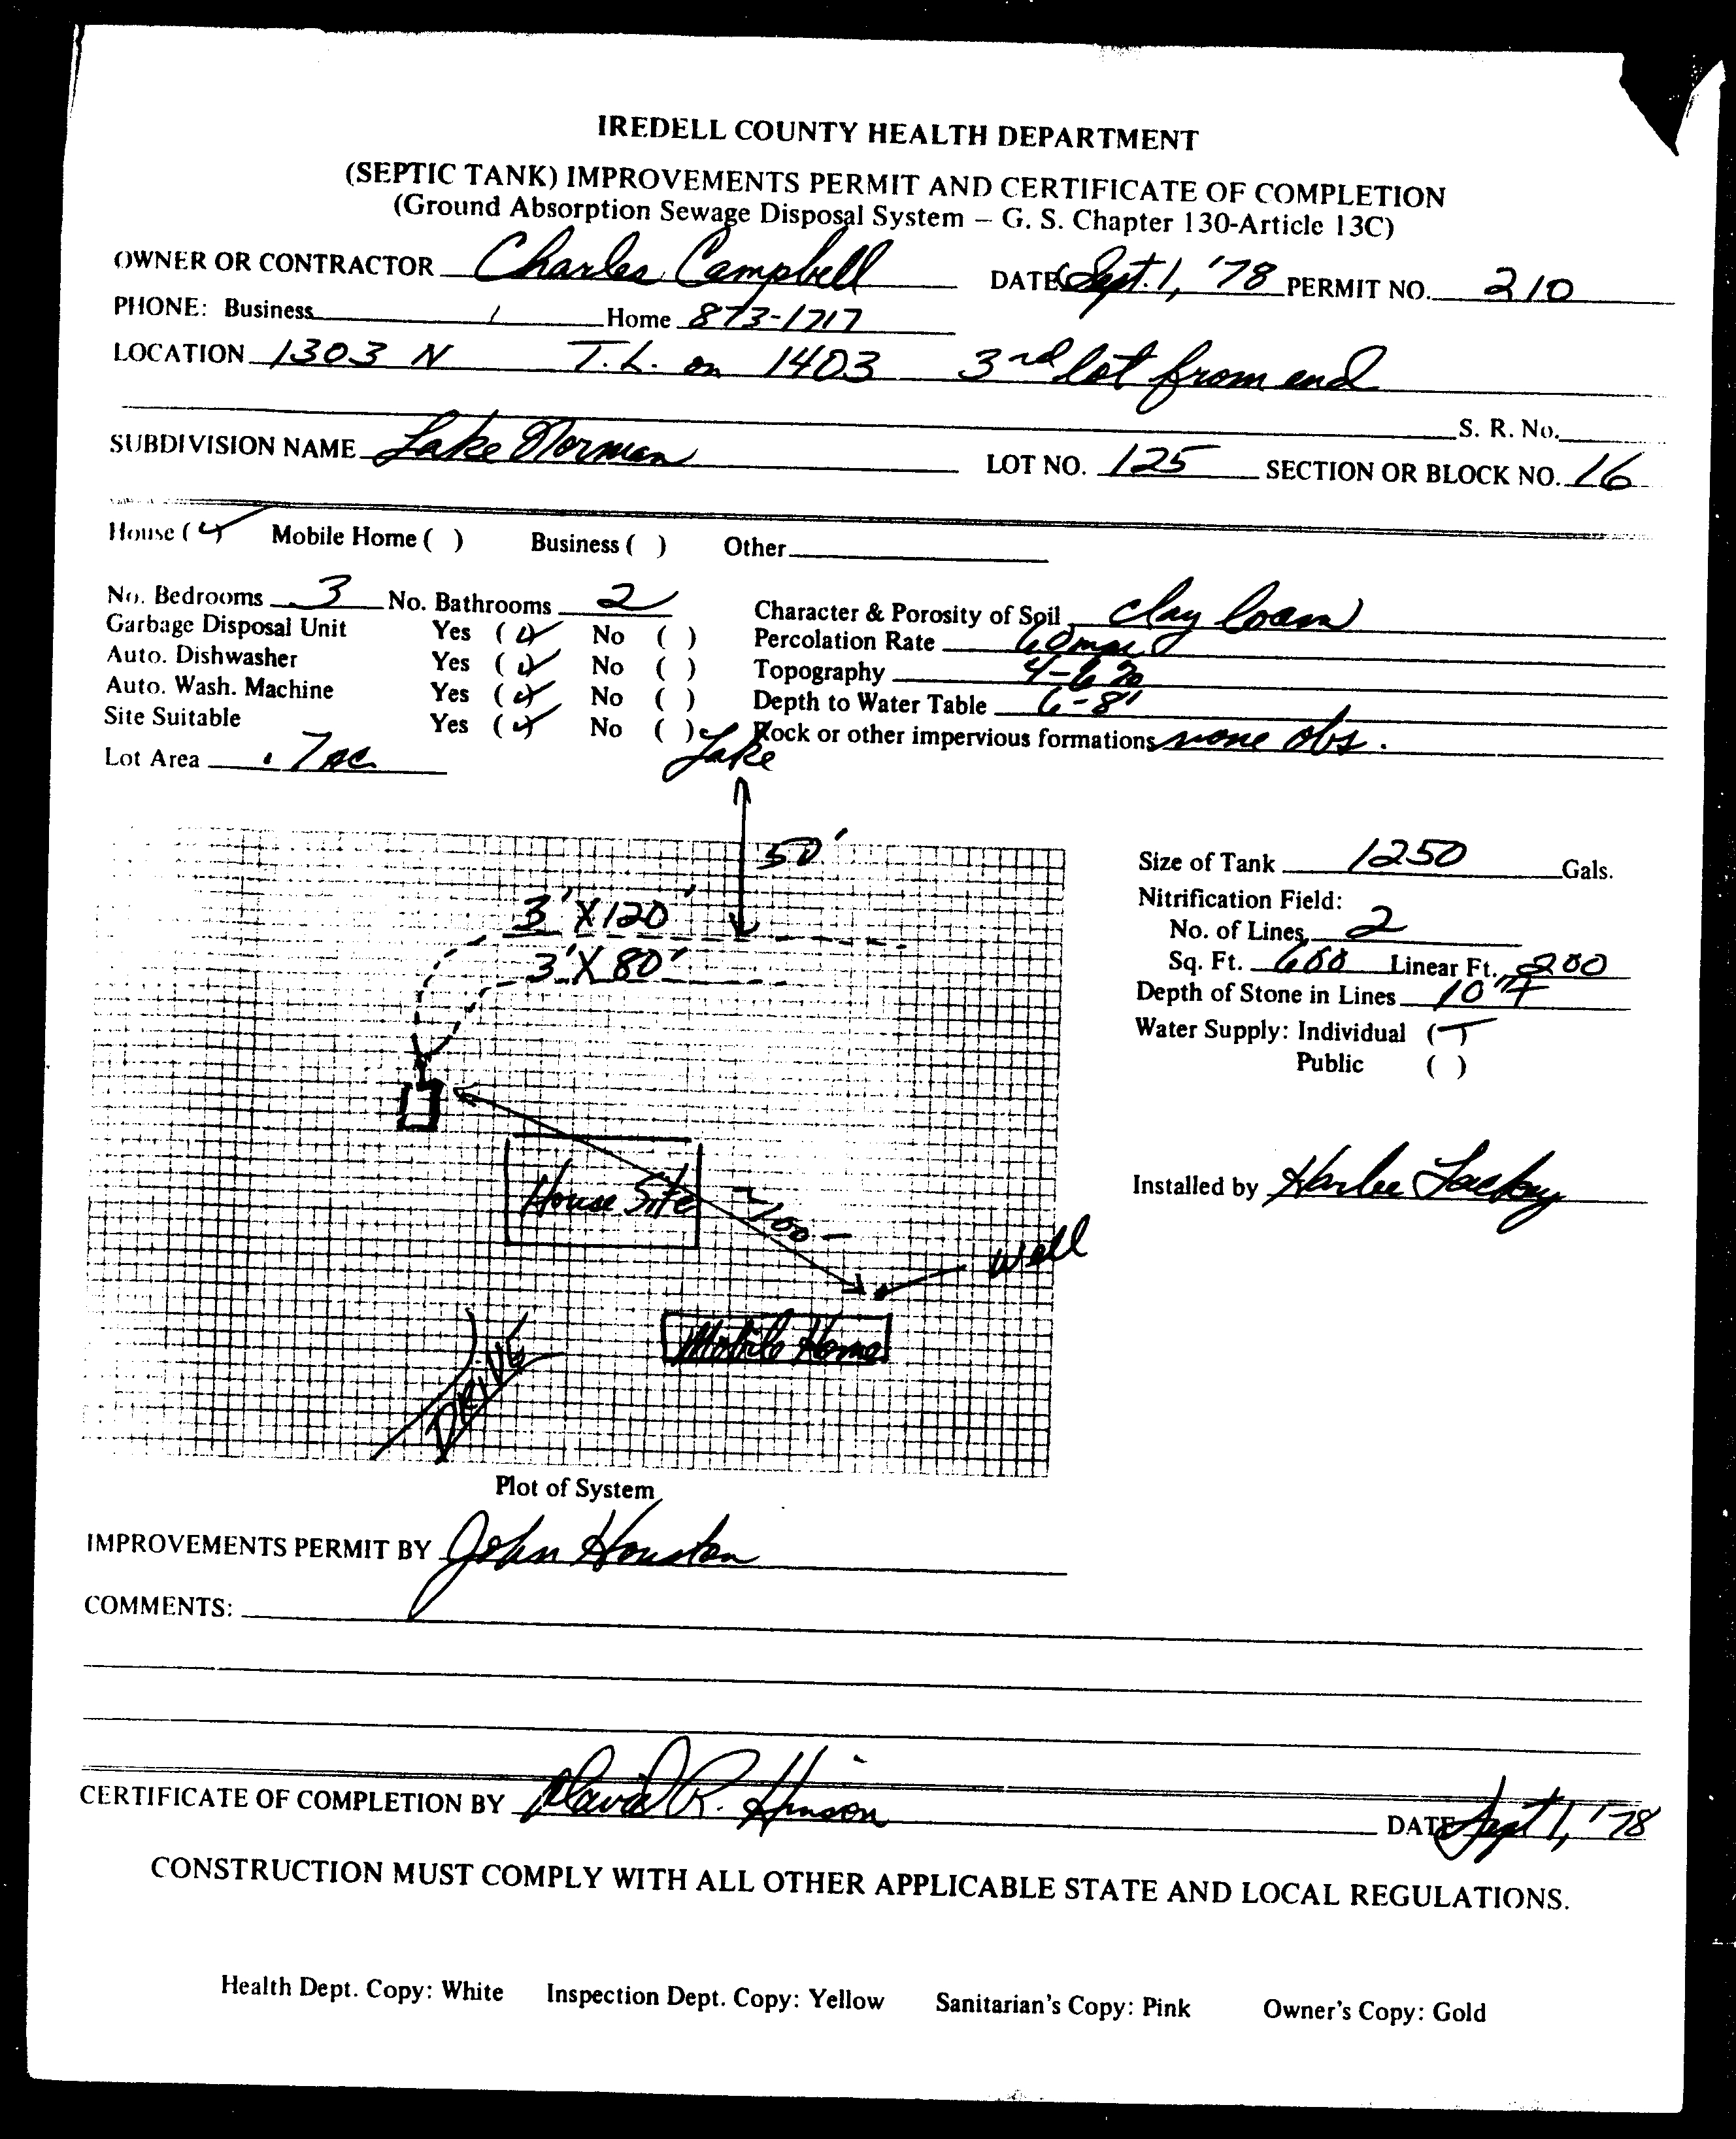 IREDELL COUNTY HEALTH DEPARTMENT
(SEPTIC TANK) IMPROVEMENTS PERMIT AND CERTIFICATE OF COMPLETION
(Ground Absorption Sewage Disposal System – G. S. Chapter 130-Article 13C)
OWNER OR CONTRACTOR Charles Campbell DATE Sept. 1, '78 PERMIT NO. 210
PHONE: Business / Home 873-1717
LOCATION 1303 N T.L. on 1403 3rd lot from end
S. R. No.
SUBDIVISION NAME Lake Norman LOT NO. 125 SECTION OR BLOCK NO. 16
House (✓) Mobile Home ( ) Business ( ) Other
No. Bedrooms 3 No. Bathrooms 2 Character & Porosity of Soil clay loam
Garbage Disposal Unit Yes (✓) No ( ) Percolation Rate 60 mpi
Auto. Dishwasher Yes (✓) No ( ) Topography 4-6 %
Auto. Wash. Machine Yes (✓) No ( ) Depth to Water Table 6-8'
Site Suitable Yes (✓) No ( ) Rock or other impervious formations none obs.
Lot Area .7 ac
Lake
50'
Size of Tank 1250 Gals.
3' X 120'
Nitrification Field:
No. of Lines 2
3' X 80'
Sq. Ft. 600 Linear Ft. 200
Depth of Stone in Lines 10"
Water Supply: Individual (✓)
Public ( )
House Site
~100-
Installed by Harlee Lackey
Well
Mobile Home
DRIVE
Plot of System
IMPROVEMENTS PERMIT BY John Houston
COMMENTS:
CERTIFICATE OF COMPLETION BY David R. Hinson DATE Sept 1, '78
CONSTRUCTION MUST COMPLY WITH ALL OTHER APPLICABLE STATE AND LOCAL REGULATIONS.
Health Dept. Copy: White Inspection Dept. Copy: Yellow Sanitarian's Copy: Pink Owner's Copy: Gold